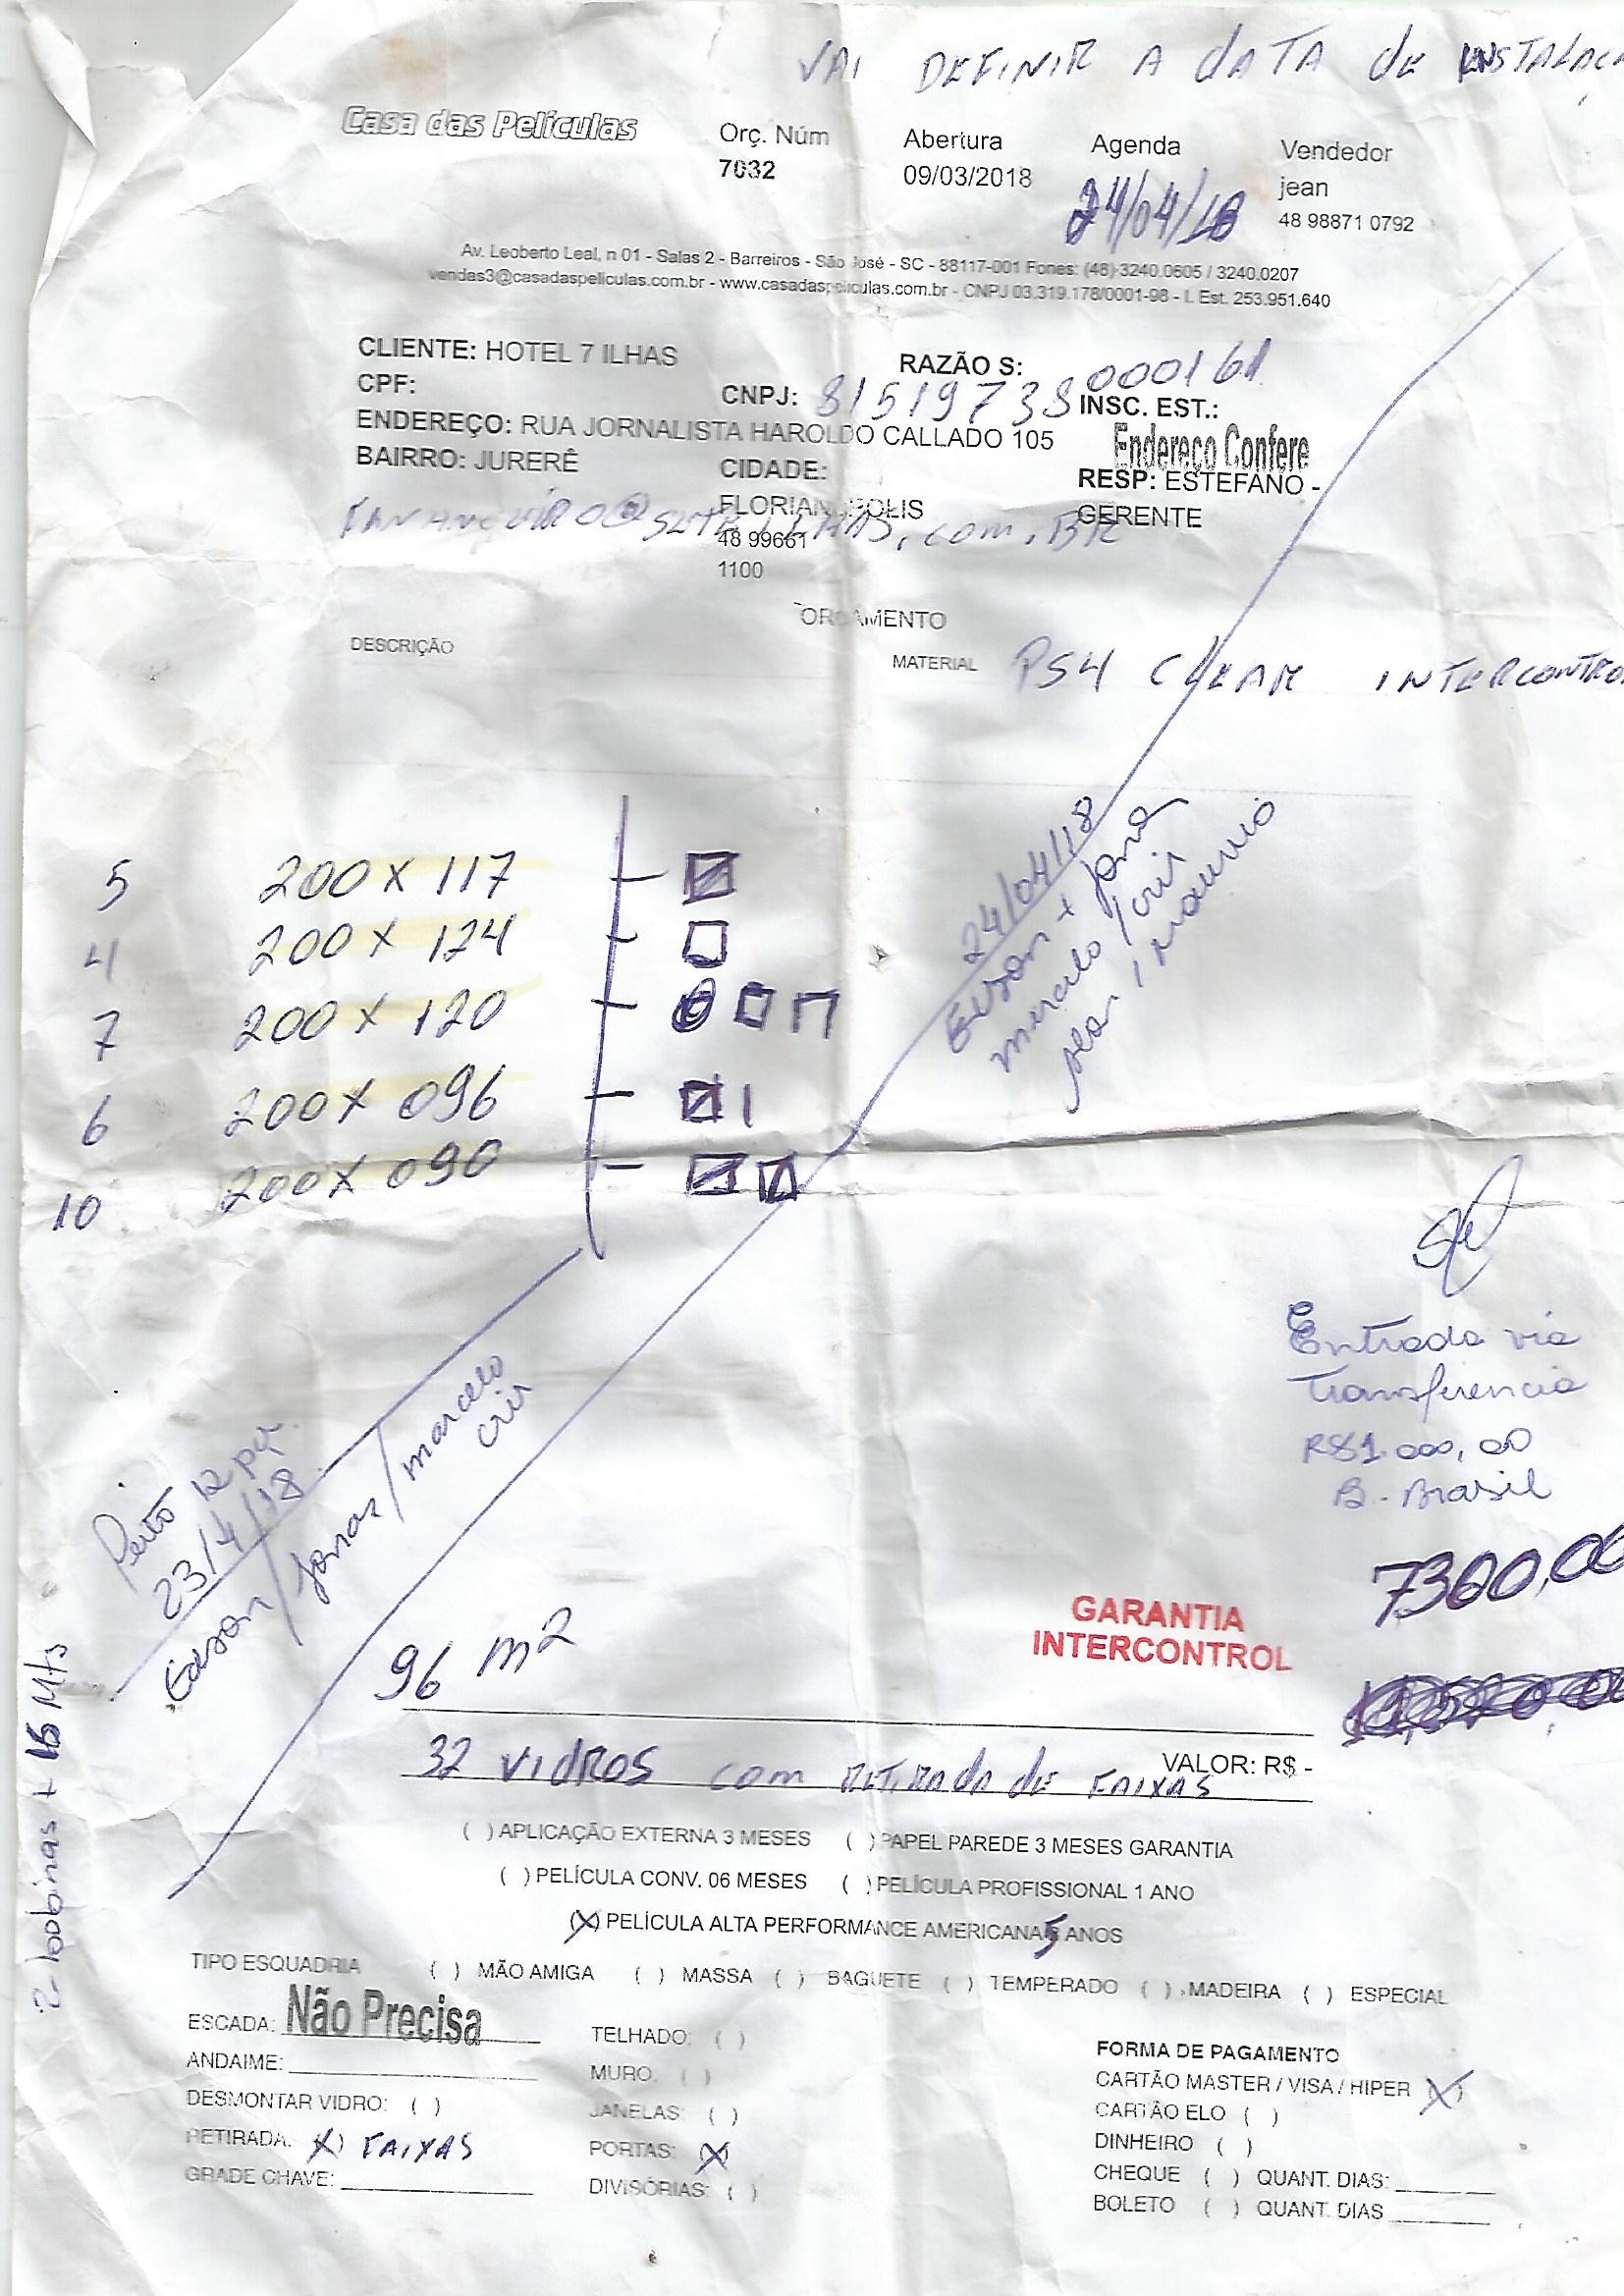 VAI DEFINIR A DATA DE INSTALAÇ
Casa das Películas
Orç. Núm
7032
Abertura
09/03/2018
Agenda
24/04/18
Vendedor
jean
48 98871 0792
Av. Leoberto Leal, n 01 - Salas 2 - Barreiros - São José - SC - 88117-001 Fones: (48) 3240.0605 / 3240.0207
vendas3@casadaspeliculas.com.br - www.casadaspeliculas.com.br - CNPJ 03.319.178/0001-98 - I. Est. 253.951.640
CLIENTE: HOTEL 7 ILHAS
RAZÃO S:
CPF:
CNPJ: 81519738 000161
INSC. EST.:
ENDEREÇO: RUA JORNALISTA HAROLDO CALLADO 105
Endereço Confere
BAIRRO: JURERÊ
CIDADE:
FLORIANÓPOLIS
RESP: ESTEFANO -
GERENTE
48 99661
1100
ORÇAMENTO
DESCRIÇÃO
MATERIAL PS4 CLEAR INTERCONTRO
5 200 X 117
4 200 X 124
7 200 X 120
6 200 X 096
10 200 X 090
24/04/18
Edson + Jonas
marcelo / cris
Entrada via
Transferencia
R$1.000,00
B. Brasil
7300,00
23/4/18
Edson / Jonas / marcelo
cris
96 m2
GARANTIA
INTERCONTROL
VALOR: R$ -
32 VIDROS COM RETIRADA DE FAIXAS
2 boobinas + 15 Mts
( ) APLICAÇÃO EXTERNA 3 MESES ( ) PAPEL PAREDE 3 MESES GARANTIA
( ) PELÍCULA CONV. 06 MESES ( ) PELÍCULA PROFISSIONAL 1 ANO
(X) PELÍCULA ALTA PERFORMANCE AMERICANA 5 ANOS
TIPO ESQUADRIA ( ) MÃO AMIGA ( ) MASSA ( ) BAGUETE ( ) TEMPERADO ( ) MADEIRA ( ) ESPECIAL
ESCADA: Não Precisa
ANDAIME:
DESMONTAR VIDRO: ( )
RETIRADA: (X) FAIXAS
GRADE CHAVE:
TELHADO: ( )
MURO: ( )
JANELAS: ( )
PORTAS: (X)
DIVISÓRIAS: ( )
FORMA DE PAGAMENTO
CARTÃO MASTER / VISA / HIPER (X)
CARTÃO ELO ( )
DINHEIRO ( )
CHEQUE ( ) QUANT. DIAS:
BOLETO ( ) QUANT. DIAS